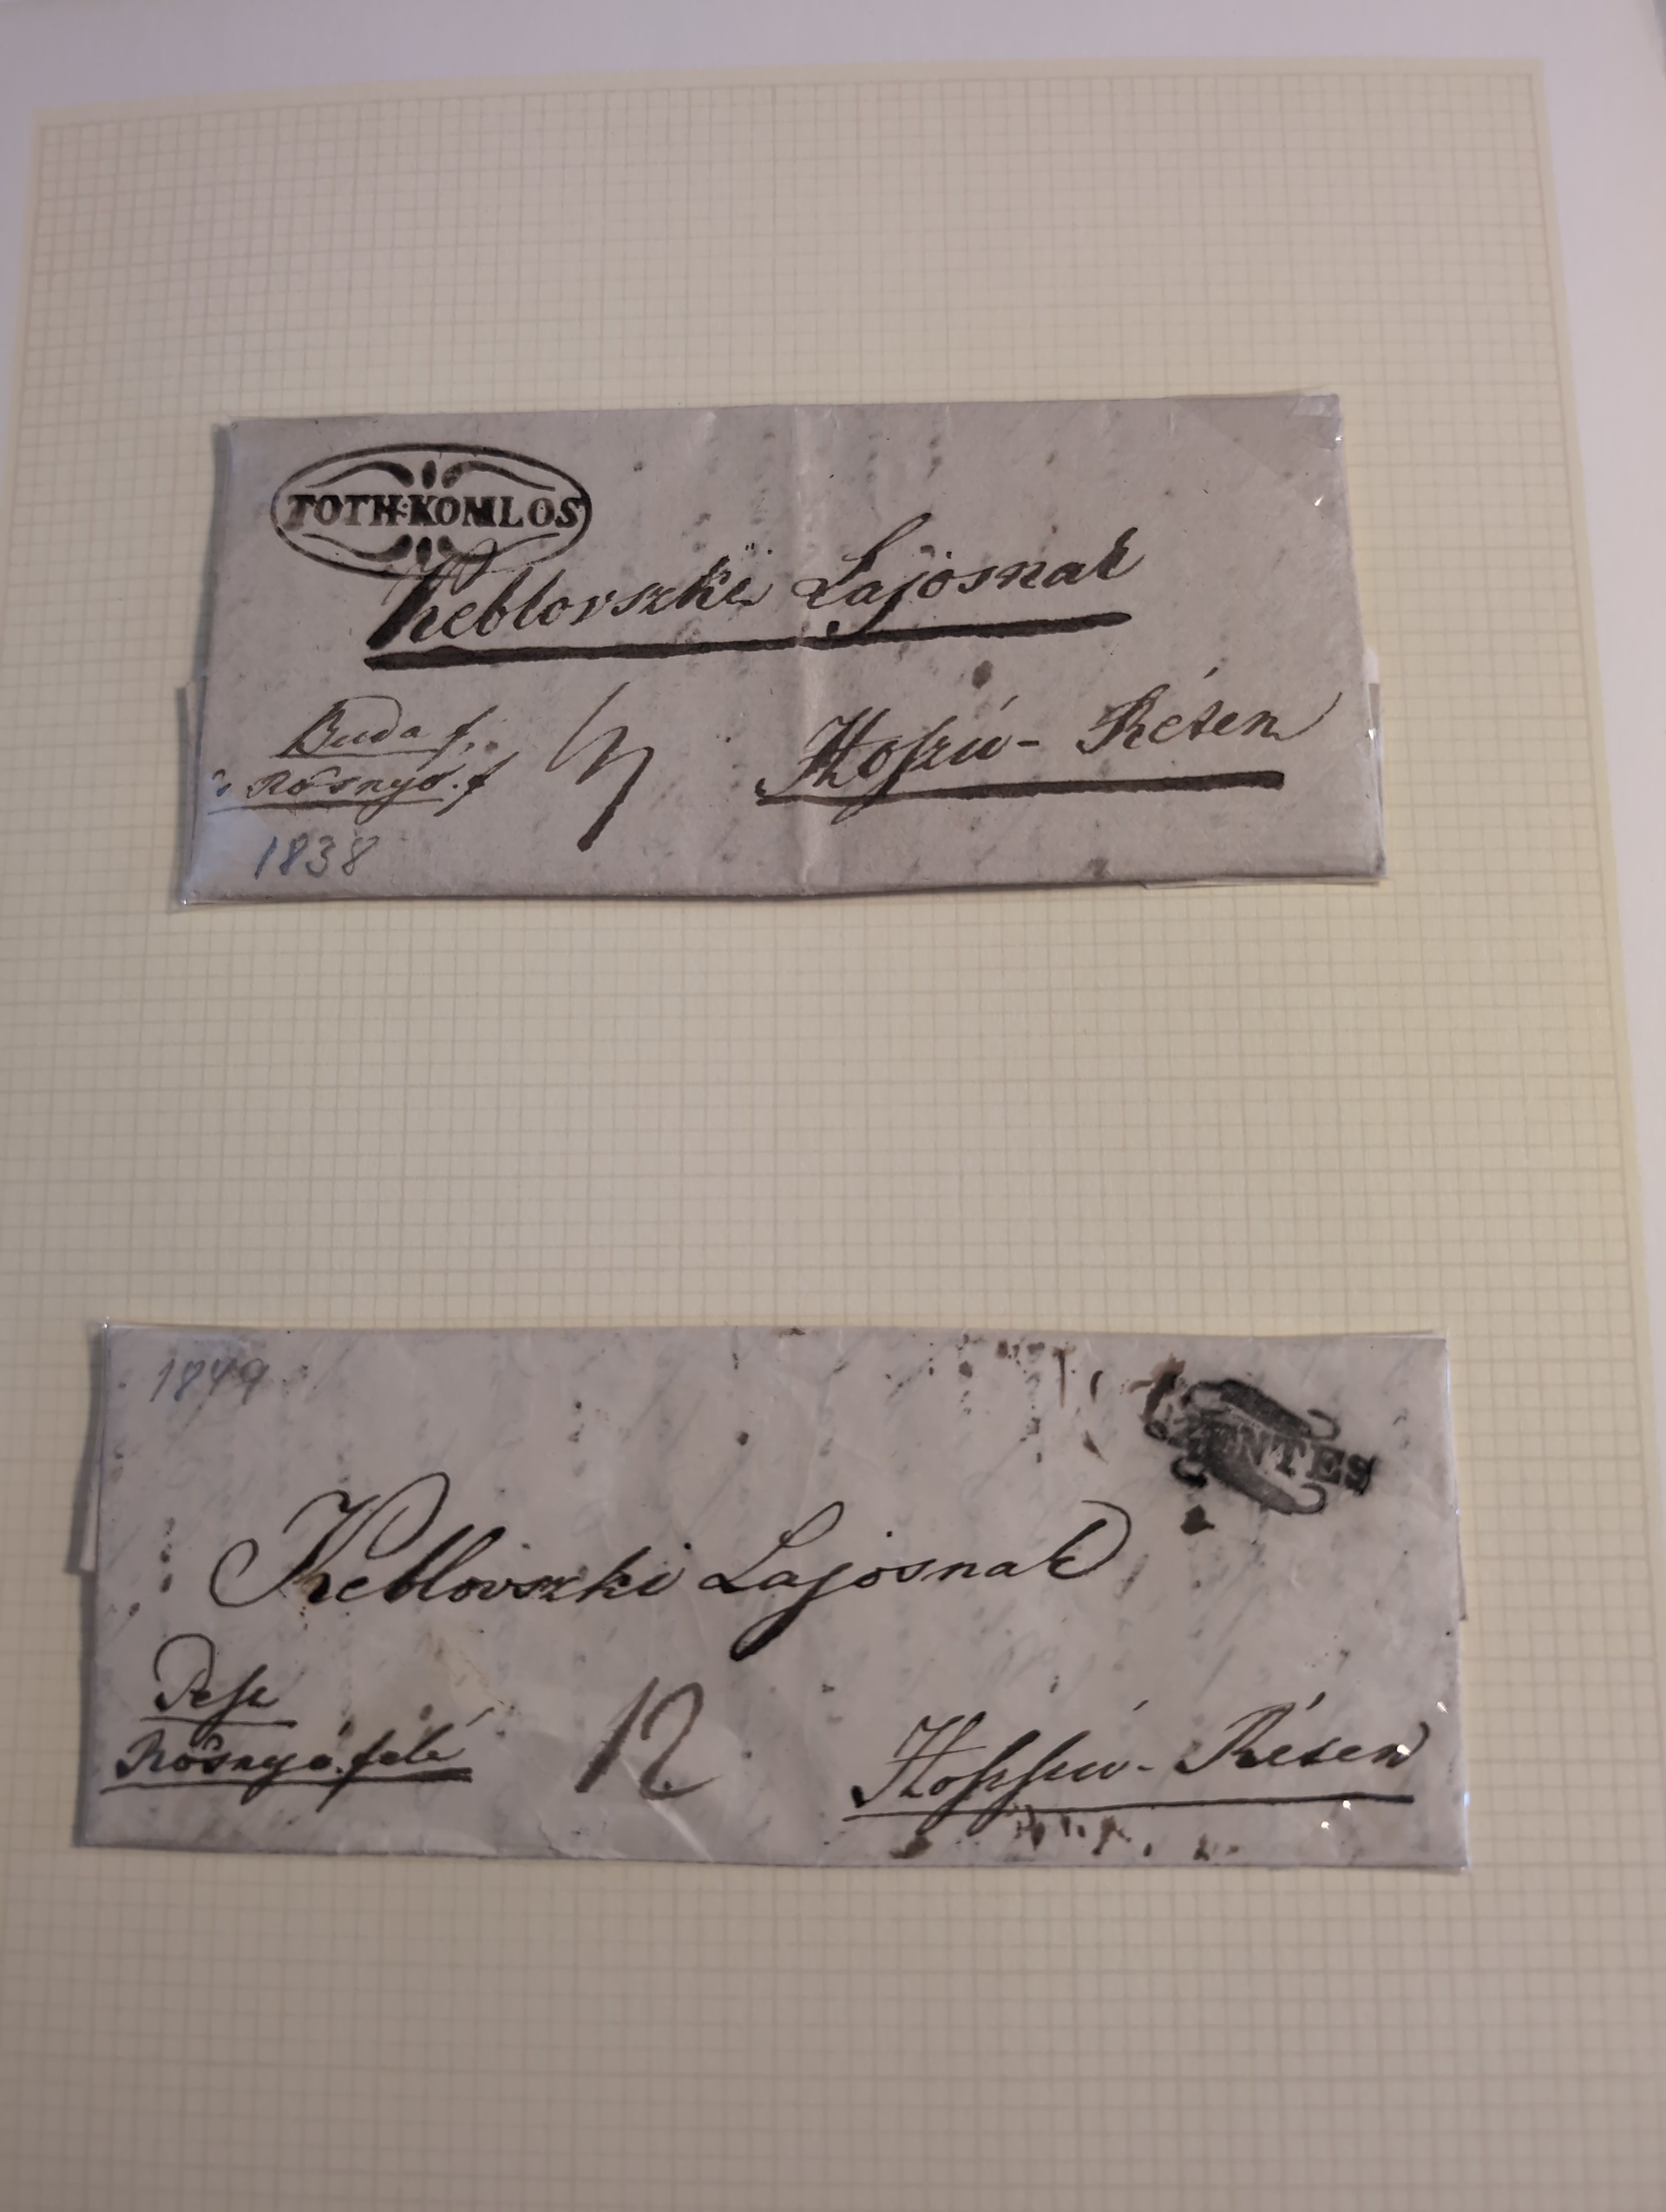 TOTH-KOMLOS
Keblovszki Lajosnak
Buda f.
Rosnyó. f
Hoszú - Réten
1838
1849
SZENTES
Keblovszki Lajosnak
Pest
Rosnyó. felé
12
Hoszszú - Réten